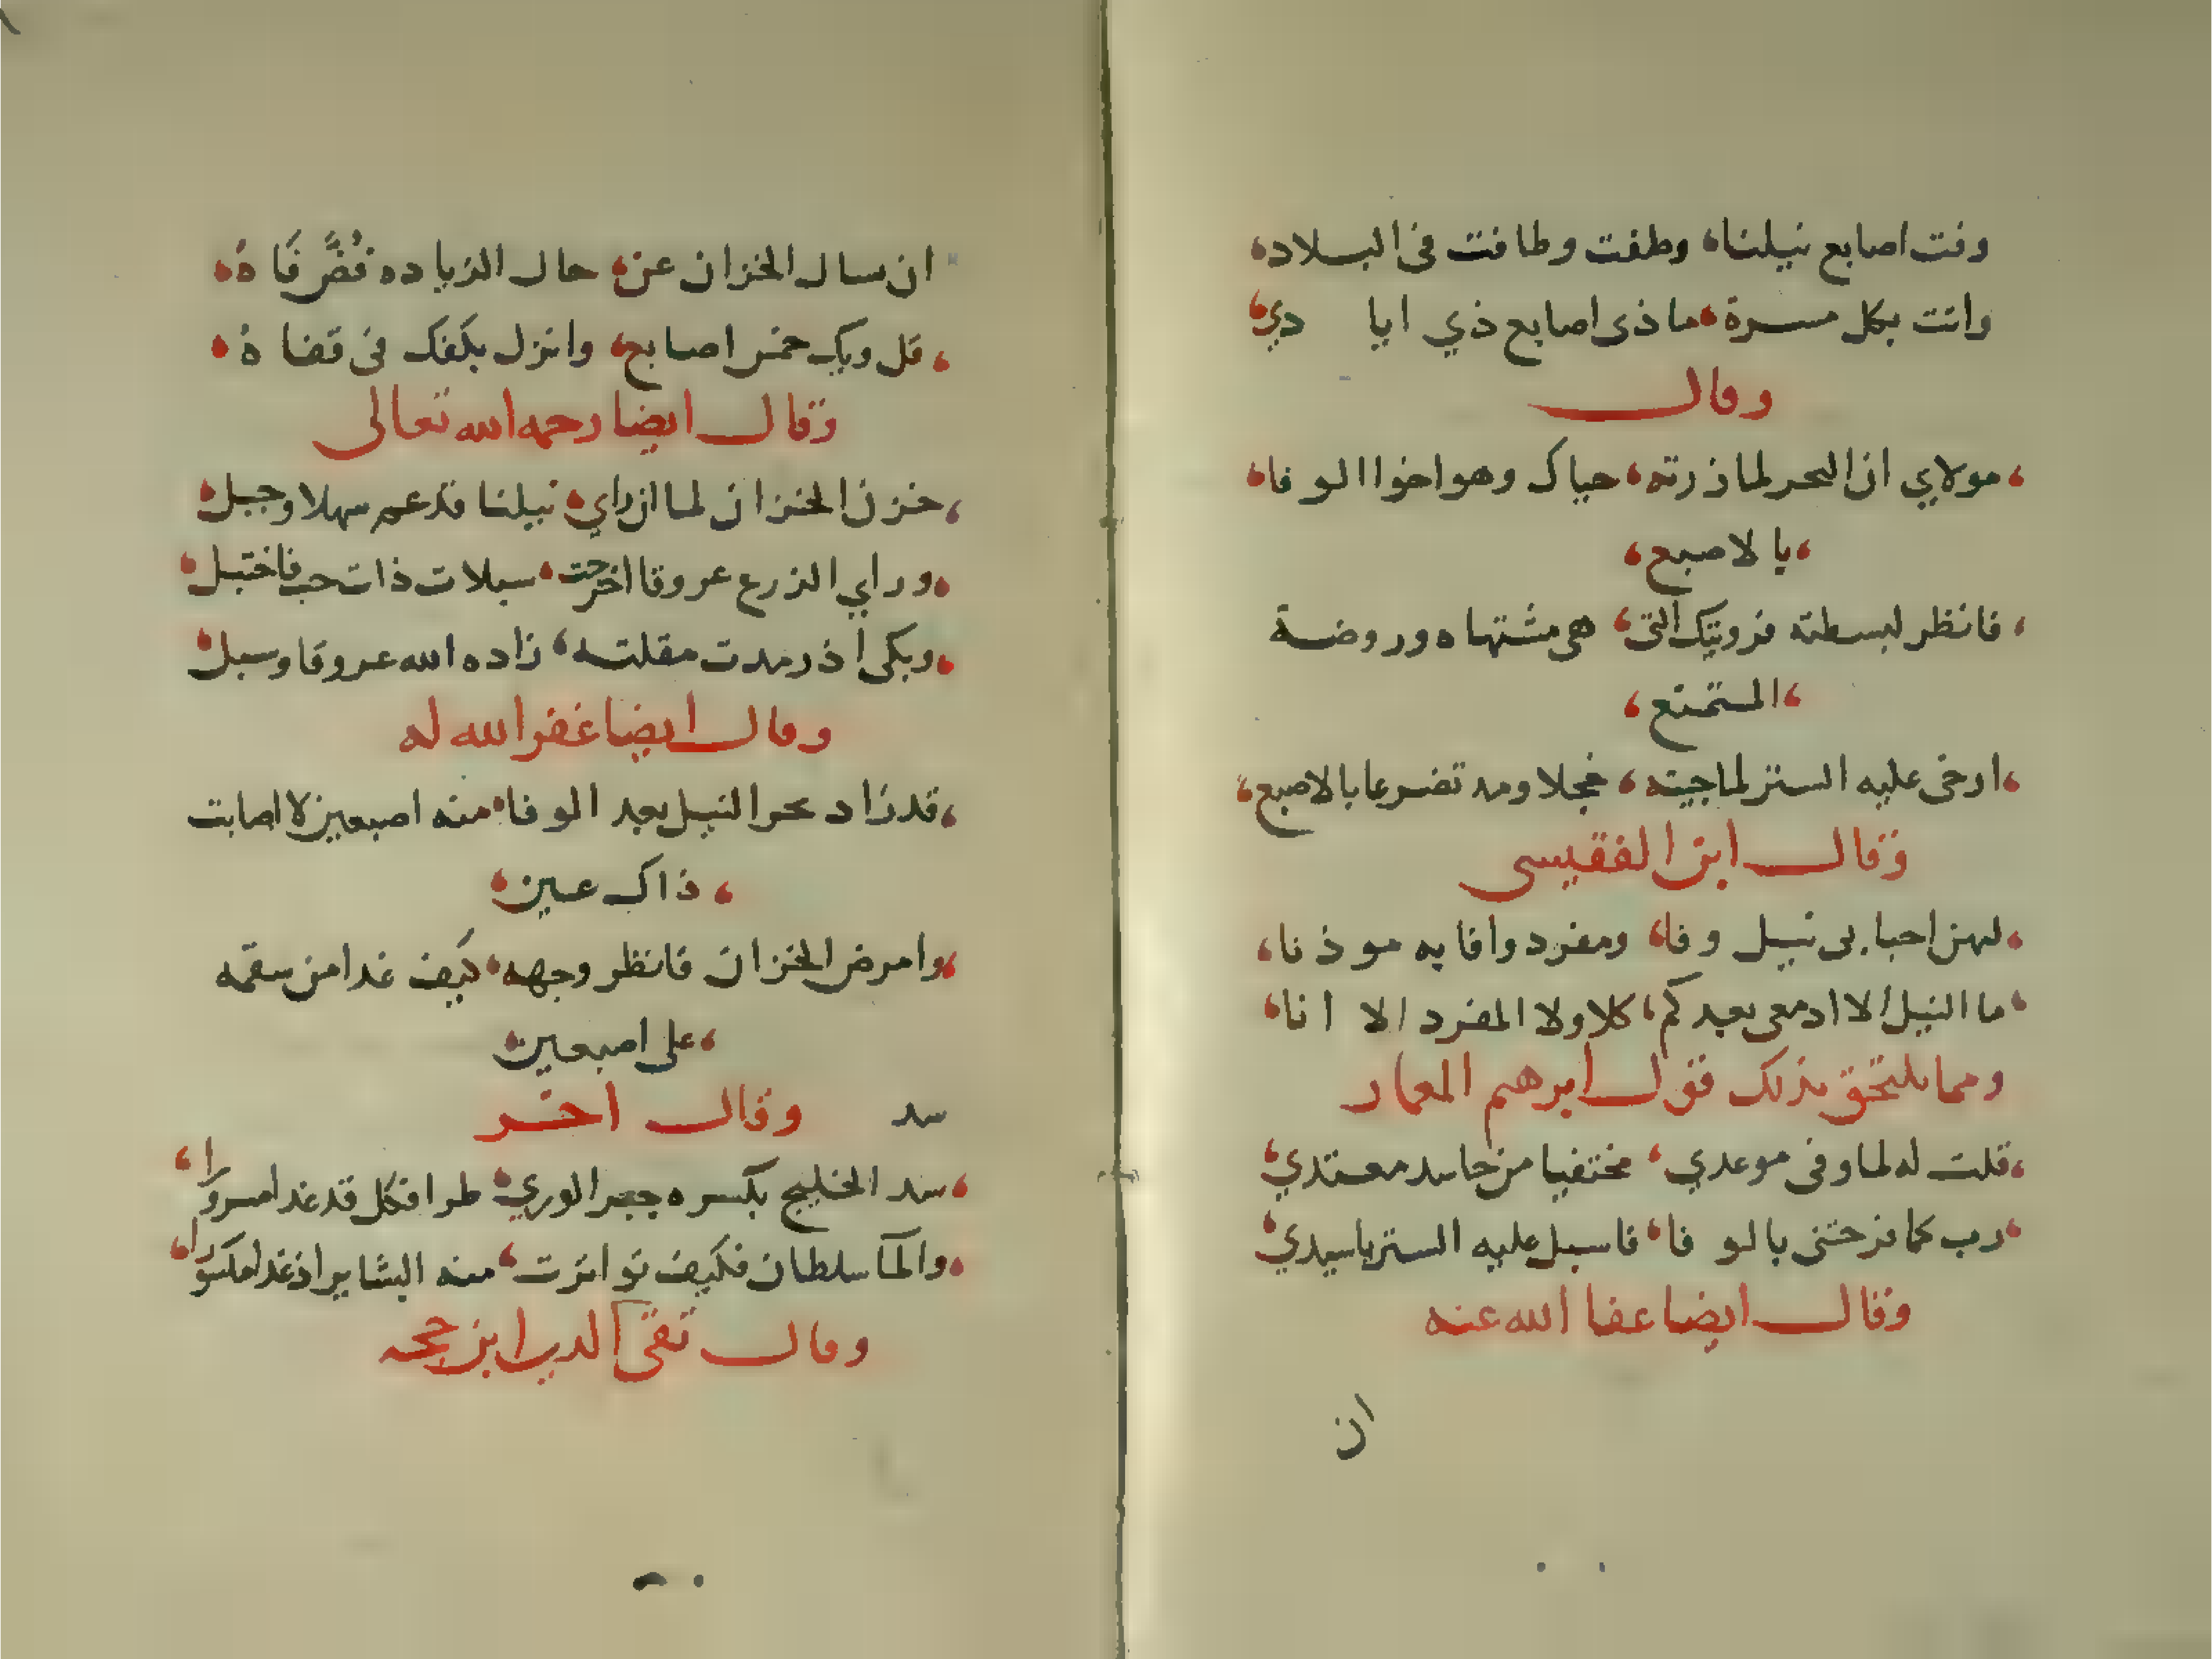 وفت اصابع نيلنا، وطفت وطافت فى البلاد،
واتت بكل مسرة، ماذى اصابع ذي ايا دي،
وقال
، مولاي ان البحر لما زرته، حياك وهو اخوا الوفا،
، يا لاصبع،
، فانظر لبسطته فرويتك التى، هى مشتهاه وروضة
، المتمتع،
، ارخى عليه الستر لما جيته، خجلا ومد تضرعا بالاصبع،
وقال ابن الفقيسى
، ليهن احبابى نيل وفا، ومفرد وافا به موذنا،
، ما النيل الا ادمعى بعدكم، كلا ولا المفرد الا انا،
ومما يلتحق بذلك قول ابرهيم المعمار
، قلت له لما وفى موعدي، مختفيا من حاسد معتدي،
، رب كما فرحتنى بالوفا، فاسبل عليه الستر يا سيدي،
وقال ايضا عفا الله عنه
ان
ان سال الخزان عن، حال الزياده
، قل ويك خمس اصابع، وانزل بكفك فى قفاه،
وقال ايضا رحمه الله تعالى
، خزن الخزان لما ان راي، نيلنا قد عم سهلا وجبل،
، وراي الزرع عروقا اخرجت، سبلات ذات حب فاختبل،
، وبكى اذ رمدت مقلته، زاده الله عروقا وسبل،
وقال ايضا غفر الله له
، قد زاد بحر النيل بعد الوفا، منه اصبعين لا اصابت
، ذاك عين،
، وامرض الخزان فانظر وجهه، كيف غدا من سقمه
، على اصبعين،
سد وقال اخر
، سد الخليج بكسره جبر الوري، طرا فكل قد غدا مسرورا،
، والما سلطان فكيف تواترت، منه البشاير اذ غدا مكسورا،
وقال تقى الدين ابن حجه